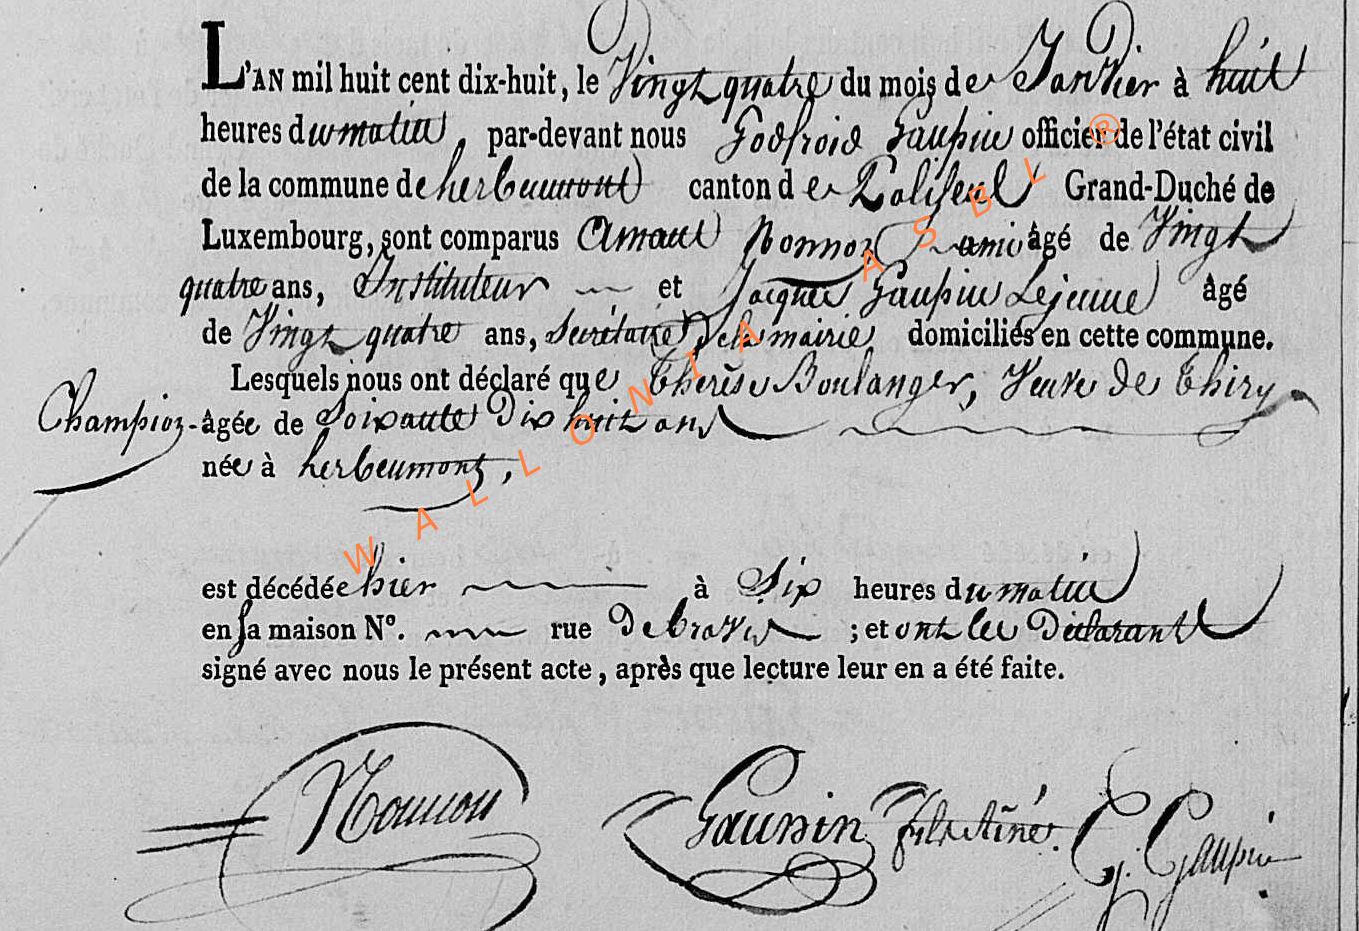 L'AN mil huit cent dix-huit, le Vingt quatre du mois de Janvier à huit
heures du matin, par-devant nous Godfroid Gaupin officier de l'état civil
de la commune de herbeumont canton de Paliseul Grand-Duché de
Luxembourg, sont comparus Arnaud Nonnon ami âgé de Vingt
quatre ans, Instituteur et Jacques Gaupin Lejeune âgé
de Vingt quatre ans, Secrétaire de la mairie domiciliés en cette commune.
Lesquels nous ont déclaré que Therèse Boulanger, Veuve de Thiry
Champion - âgée de Soixante Dix huit ans
née à herbeumont,
est décédée hier à Six heures du matin
en sa maison N°. rue ; et ont les Déclarant
signé avec nous le présent acte, après que lecture leur en a été faite.
Nonnon Gaupin G. Gaupin
WALLONIA ASBL ®